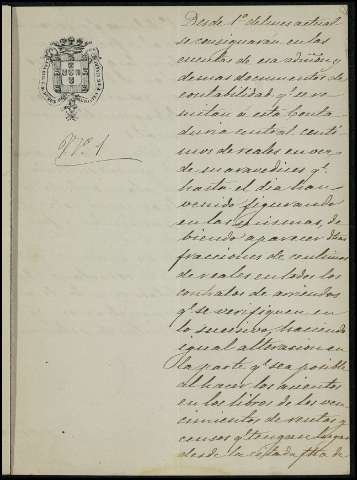 Nº. 1
Desde 1º del mes actual
se consignaran en las
cuentas de esa admón y
demas documentos de
contabilidad qº se re
mitan a esta Conta
duria central centi
mos de reales en vez
de maravedises qº
hasta el dia han
venido figurando
en las mismas, de
biendo aparecer dhas
fracciones de centimos
de reales en todos los
contratos de arriendos
qº se verifiquen en
lo sucesivo, haciendo
igual alteracion en
la parte qº sea posible
al hacer los asientos
en los libros de los ven
cimientos de rentas y
censos qº tengan lugar
desde la citada fha de